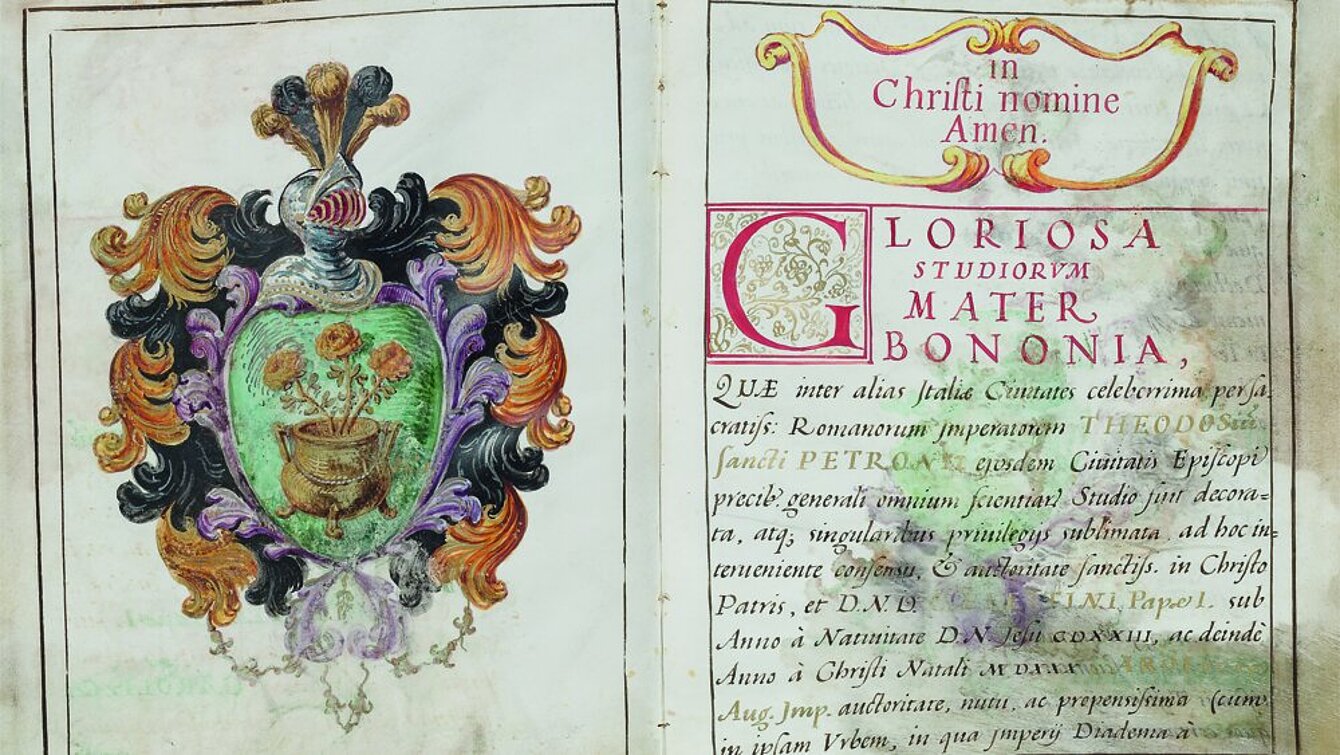 in
Chriſti nomine
Amen.
GLORIOSA
STUDIORVM
MATER
BONONIA,
QUÆ inter alias Italiæ Ciuitates celeberrima perſa-
cratiſs: Romanorum Imperatorem THEODOSIUM
ſancti PETRONII eiuſdem Ciuitatis Epiſcopi
precib. generali omnium ſcientiar. Studio ſuit decora=
ta, atq; singularibus priuilegijs sublimata, ad hoc in=
terueniente conſenſu, & auctoritate ſanctiſs. in Chriſto
Patris, et D.N.D. Papæ I. sub
Anno à Natiuitate D.N. Jeſu CDXXIII, ac deindè
Anno à Chriſti Natali
Aug. Imp. auctoritate, nutu, ac propenſiſsima (cum
in ipſam Vrbem, in qua Imperij Diadema à